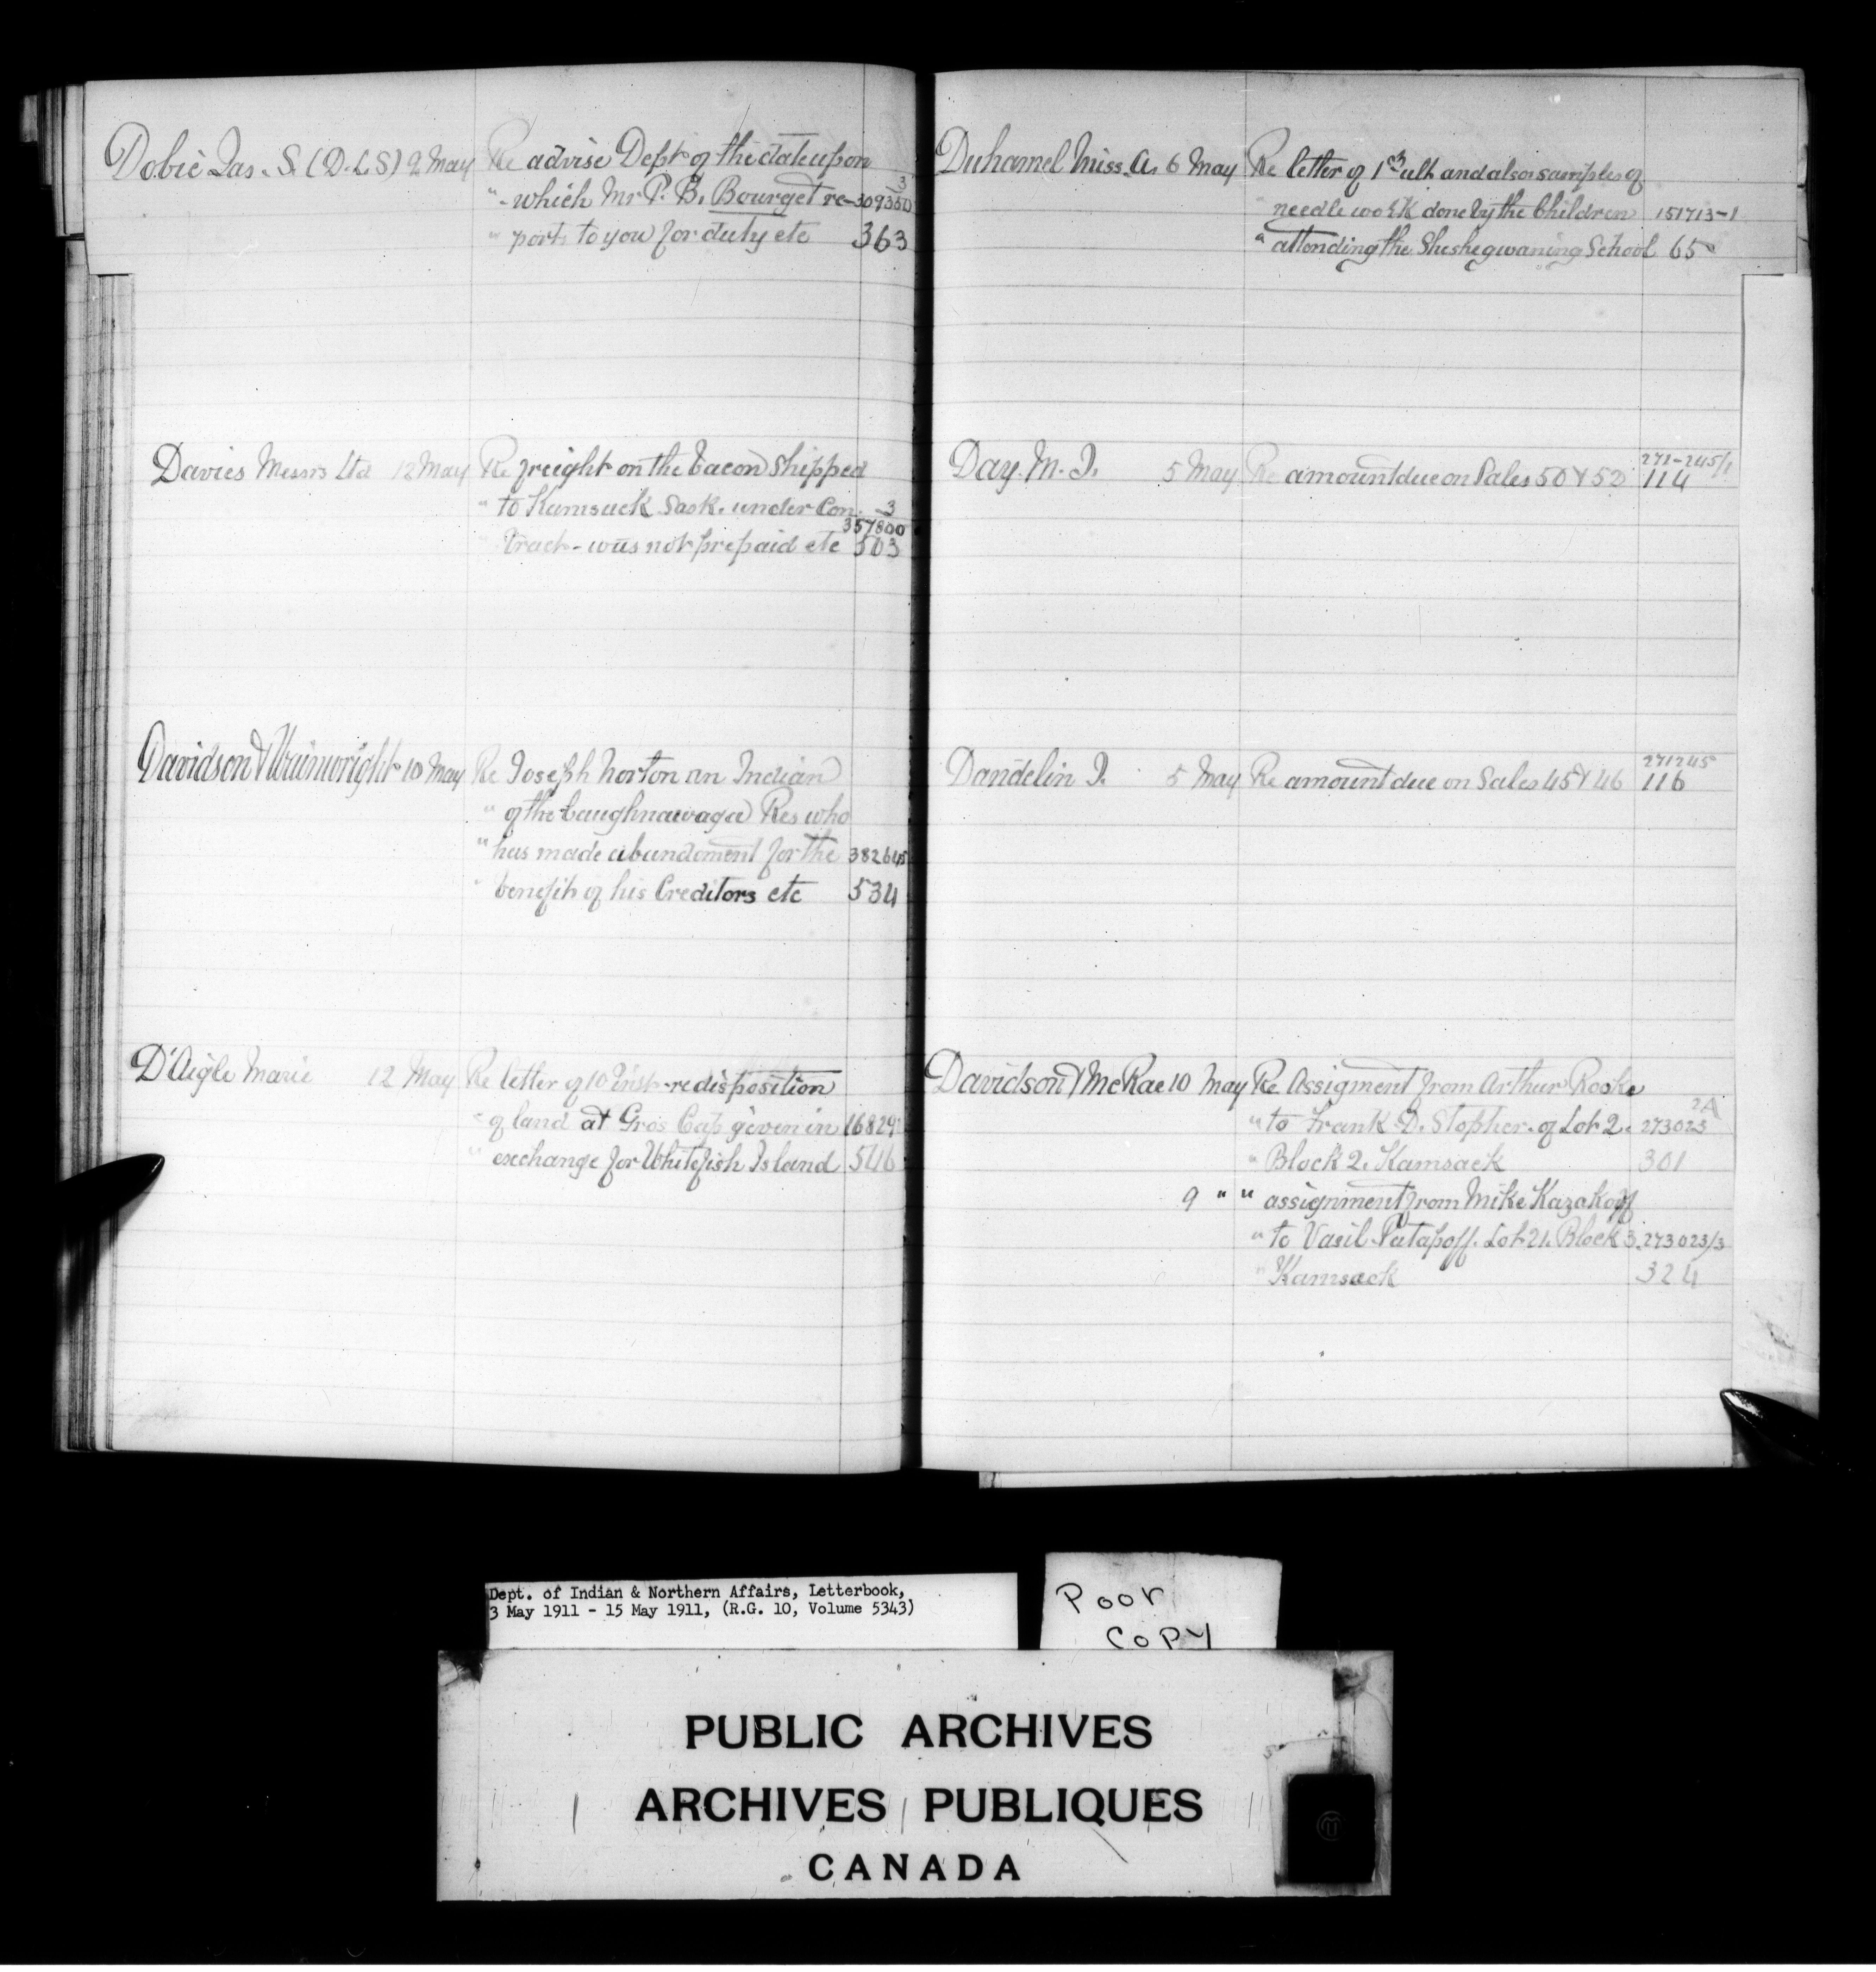 Dobie Jas. S. (D.L.S) 9 May Re advise Dept of the date upon
" which Mr P. B. Bourget re- 309350 3
" ports to you for duty etc 363
Davies Messrs Ltd 12 May Re freight on the bacon shipped
" to Kamsack Sask. under Con- 3
357800
" tract - was not prepaid etc 503
Davidson & Wainwright 10 May Re Joseph Norton an Indian
" of the Caughnawaga Res who
" has made abandoment for the 382645
" benefit of his Creditors etc 534
D'Aigle Marie 12 May Re letter of 10 inst - re disposition
" of land at Gros Cap given in 16829
" exchange for Whitefish Island 546
Duhamel Miss. A. 6 May Re letter of 1st ult and also samples of
" needle work done by the Children 151713-1
" attending the Sheshegwaning School 65
Day. M. J. 5 May Re amount due on Sales 50 & 52 271-245/1
114
Dandelin J. 5 May Re amount due on Sales 45 & 46 271245
116
Davidson & McRae 10 May Re Assigment from Arthur Rooke
" to Frank D. Stopher. of Lot 2. 273023 2A
" Block 2. Kamsack 301
9 " " assignment from Mike Kazakoff
" to Vasil Patapoff. Lot 21. Block 3. 273023/3
" Kamsack 324
Dept. of Indian & Northern Affairs, Letterbook,
3 May 1911 - 15 May 1911, (R.G. 10, Volume 5343)
Poor
Copy
PUBLIC ARCHIVES
ARCHIVES PUBLIQUES
CANADA